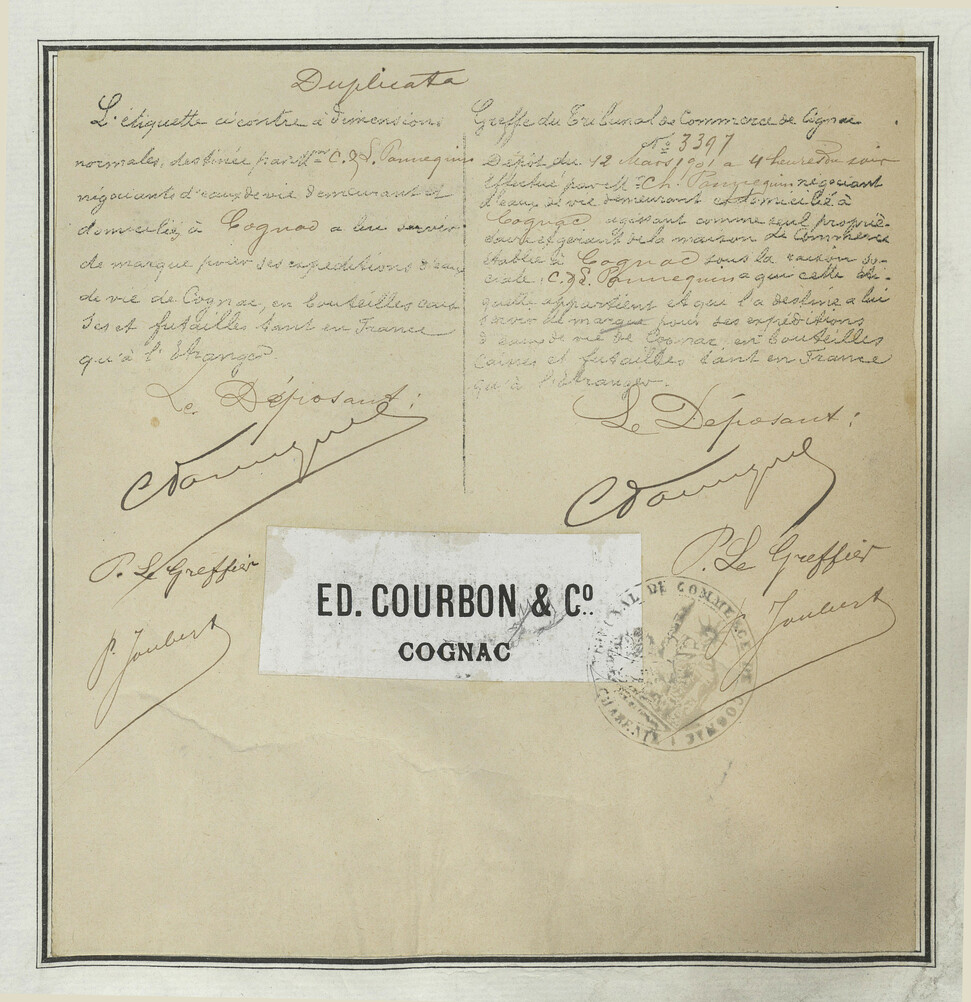 Duplicata
L'étiquette ci contre à dimensions
normales, destinée par Mrs C. & L. Pannequin
négociants d'eaux de vie demeurant et
domiciliés à Cognac a leu servir
de marque pour ses expéditions d'eaux
de vie de Cognac, en bouteilles cais
ses et futailles tant en France
qu'à l'étranger.
Le Déposant :
P. Le Greffier
P. Joubert
Greffe du Tribunal de Commerce de Cognac
No 3397
Dépôt du 12 Mars 1901 à 4 heures du soir
Effectué par Mr Ch. Pannequin négociant
d'eaux de vie demeurant et domicilié à
Cognac agissant comme seul proprié-
taire et gérant de la maison de Commerce
établie à Cognac sous la raison so-
ciale : C. & L. Pannequin a qui cette éti-
quette appartient et qui l'a destine a lui
servir de marque pour ses expéditions
d'eaux de vie de Cognac en bouteilles
caisses et futailles tant en France
qu'à l'étranger.
Le Déposant :
P. Le Greffier
P. Joubert
ED. COURBON & Co.
COGNAC
TRIBUNAL DE COMMERCE DE COGNAC
CHARENTE